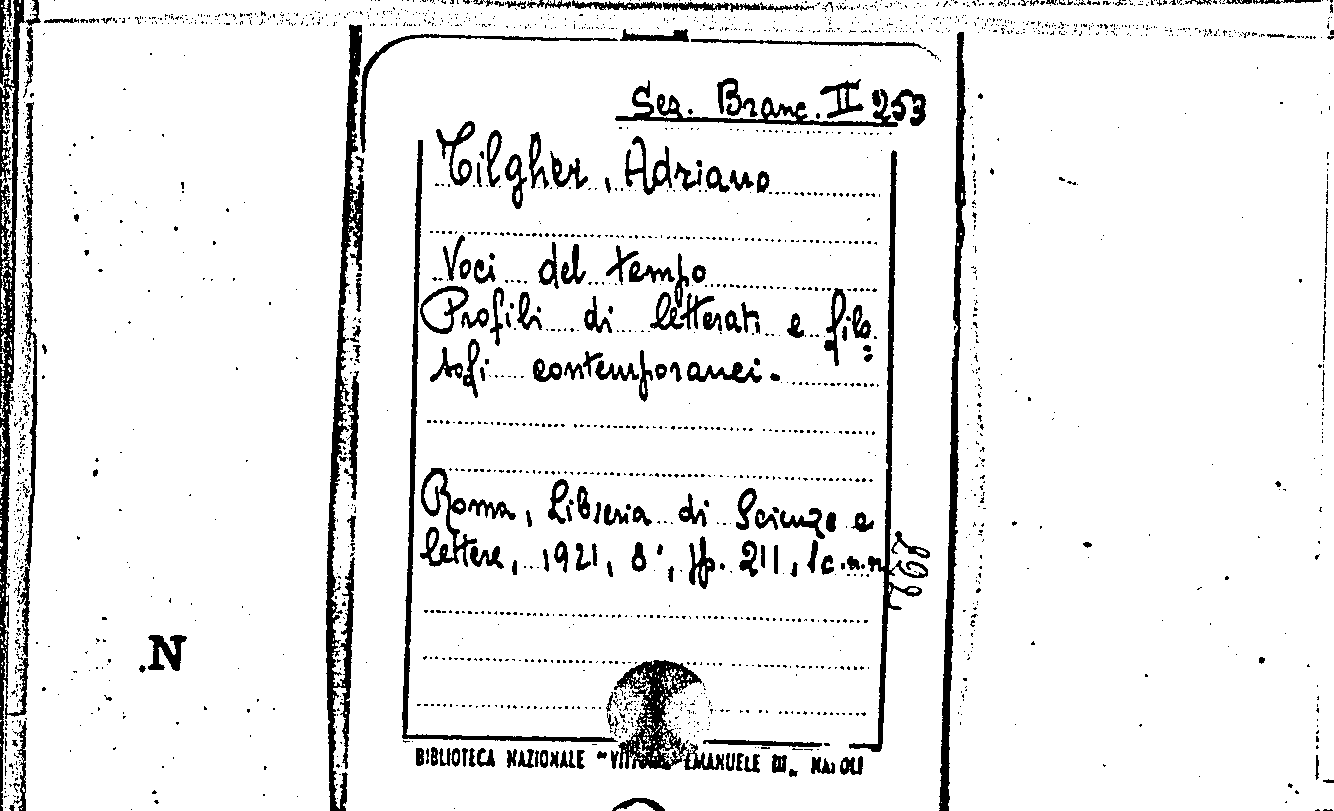 Sez. Branc. II 253
Tilgher, Adriano
Voci del tempo
Profili di letterati e filo=
sofi contemporanei.
Roma, Libreria di Scienze e
lettere, 1921, 8°, pp. 211, 1 c.n.n
.N
BIBLIOTECA NAZIONALE "VITTORIO EMANUELE III„ NAPOLI